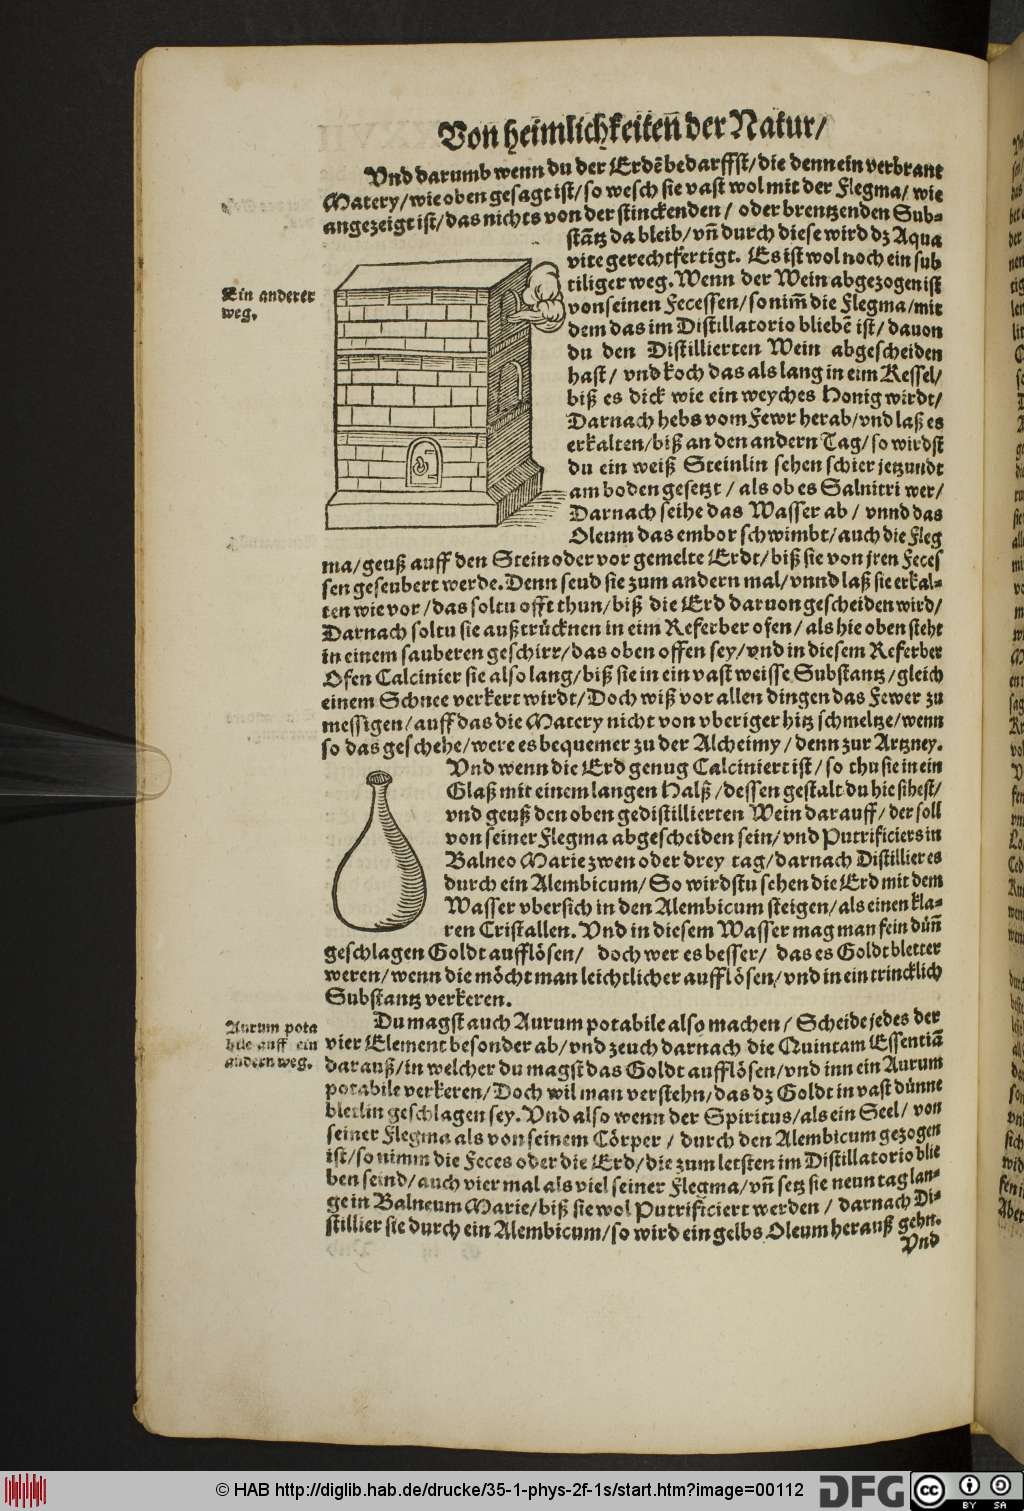 Von heimlichkeiten̄ der Natur/
Vnd darumb wenn du der Erdẽ bedarffst/ die denn ein verbrant
Matery/ wie oben gesagt ist/ so wesch sie vast wol mit der Flegma/ wie
angezeigt ist/ das nichts von der stinckenden/ oder brentzenden Sub-
stãtz da bleib/ vñ durch diese wird dz Aqua
vite gerechtfertigt. Es ist wol noch ein sub
tiliger weg. Wenn der Wein abgezogen ist
Ein anderer
weg.
von seinen Fecessen/ so nim̃ die Flegma/ mit
dem das im Distillatorio bliebẽ ist/ dauon
du den Distillierten Wein abgescheiden
hast/ vnd koch das als lang in eim Kessel/
biß es dick wie ein weyches Honig wirdt/
Darnach hebs vom Fewr herab/ vnd laß es
erkalten/ biß an den andern Tag/ so wirdst
du ein weiß Steinlin sehen schier jetzundt
am boden gesetzt/ als ob es Salnitri wer/
Darnach seihe das Wasser ab/ vnnd das
Oleum das embor schwimbt/ auch die Fleg
ma/ geuß auff den Stein oder vor gemelte Erdt/ biß sie von jren Feces
sen geseubert werde. Denn seud sie zum andern mal/ vnnd laß sie erkal-
ten wie vor/ das soltu offt thun/ biß die Erd daruon gescheiden wird/
Darnach soltu sie außtrücknen in eim Referber ofen/ als hie oben steht
in einem sauberen geschirr/ das oben offen sey/ vnd in diesem Referber
Ofen Calcinier sie also lang/ biß sie in ein vast weisse Substantz/ gleich
einem Schnee verkert wirdt/ Doch wiß vor allen dingen das Fewer zu
messigen/ auff das die Matery nicht von vberiger hitz schmeltze/ wenn
so das geschehe/ were es bequemer zu der Alcheimy/ denn zur Artzney.
Vnd wenn die Erd genug Calciniert ist/ so thu sie in ein
Glaß mit einem langen Halß/ dessen gestalt du hie sihest/
vnd geuß den oben gedistillierten Wein darauff/ der soll
von seiner Flegma abgescheiden sein/ vnd Putrificiers in
Balneo Marie zwen oder drey tag/ darnach Distillier es
durch ein Alembicum/ So wirdstu sehen die Erd mit dem
Wasser vbersich in den Alembicum steigen/ als einen kla-
ren Cristallen. Vnd in diesem Wasser mag man fein dün̄
geschlagen Goldt aufflösen/ doch wer es besser/ das es Goldtbletter
weren/ wenn die möcht man leichtlicher aufflösen/ vnd in ein trincklich
Substantz verkeren.
Aurum pota
bile auff ein
andern weg.
Du magst auch Aurum potabile also machen/ Scheide jedes der
vier Element besonder ab/ vnd zeuch darnach die Quintam Essentiã
darauß/ in welcher du magst das Goldt aufflösen/ vnd inn ein Aurum
potabile verkeren/ Doch wil man verstehn/ das dz Goldt in vast dünne
bletlin geschlagen sey. Vnd also wenn der Spiritus/ als ein Seel/ von
seiner Flegma als von seinem Cörper/ durch den Alembicum gezogen
ist/ so nimm die Feces oder die Erd/ die zum letsten im Distillatorio blie
ben seind/ auch vier mal als viel seiner Flegma/ vñ setz sie neun tag lan-
ge in Balneum Marie/ biß sie wol Putrificiert werden/ darnach Di-
stillier sie durch ein Alembicum/ so wird ein gelbs Oleum herauß gehn.
Vnd
© HAB http://diglib.hab.de/drucke/35-1-phys-2f-1s/start.htm?image=00112
DFG
cc
BY SA